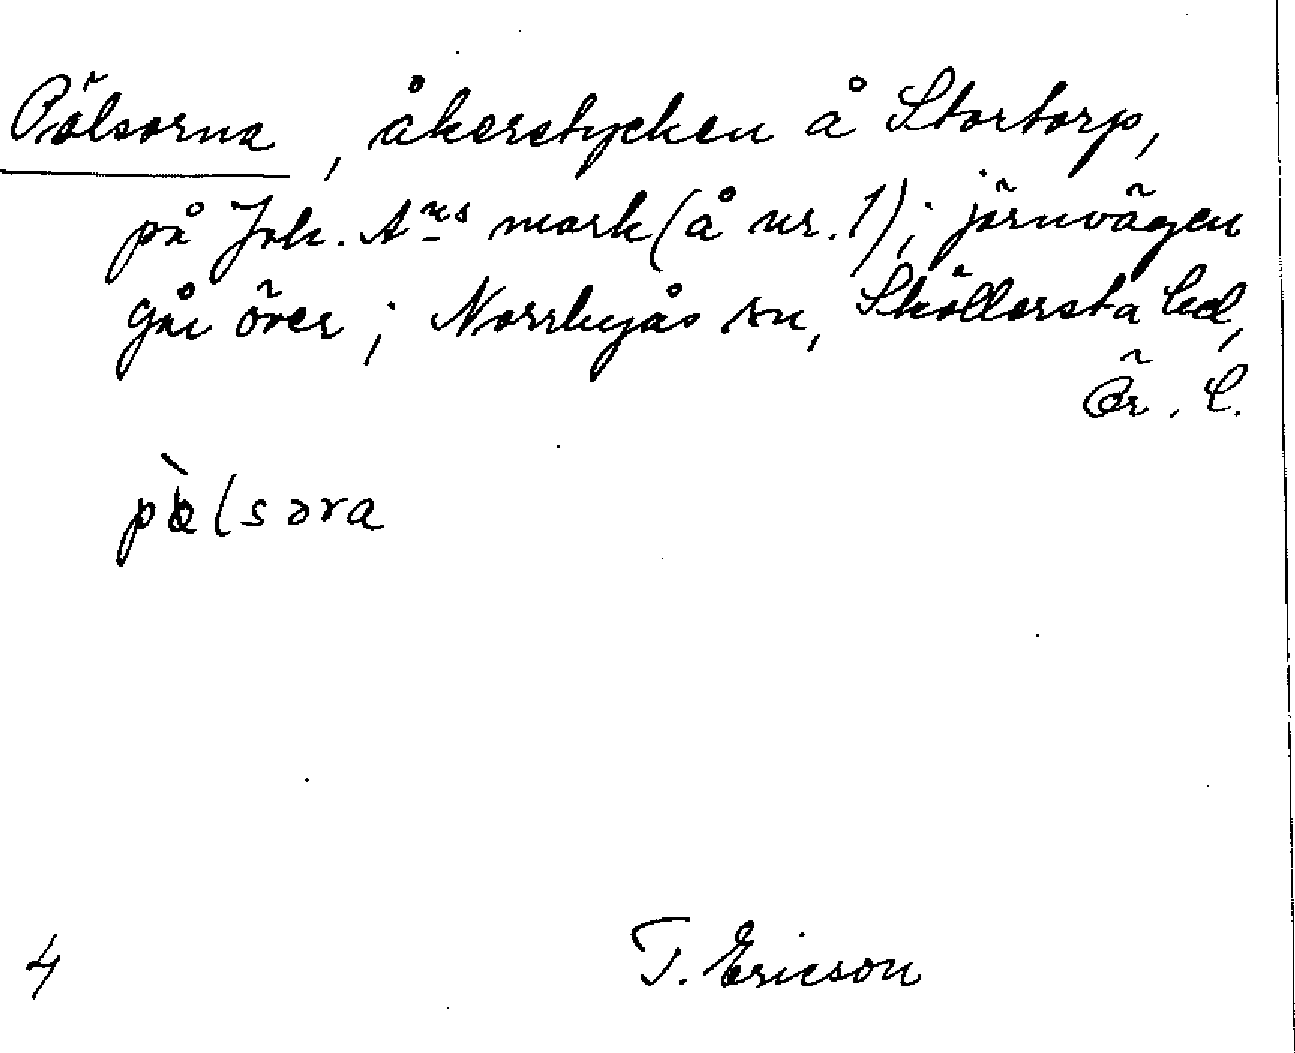 Pölsorna, åkerstycken å Stortorp,
på Joh. Ans mark (å nr. 1); järnvägen
går över; Norrbyås sn, Sköllersta hd,
Ör. l.
4
T. Ericson